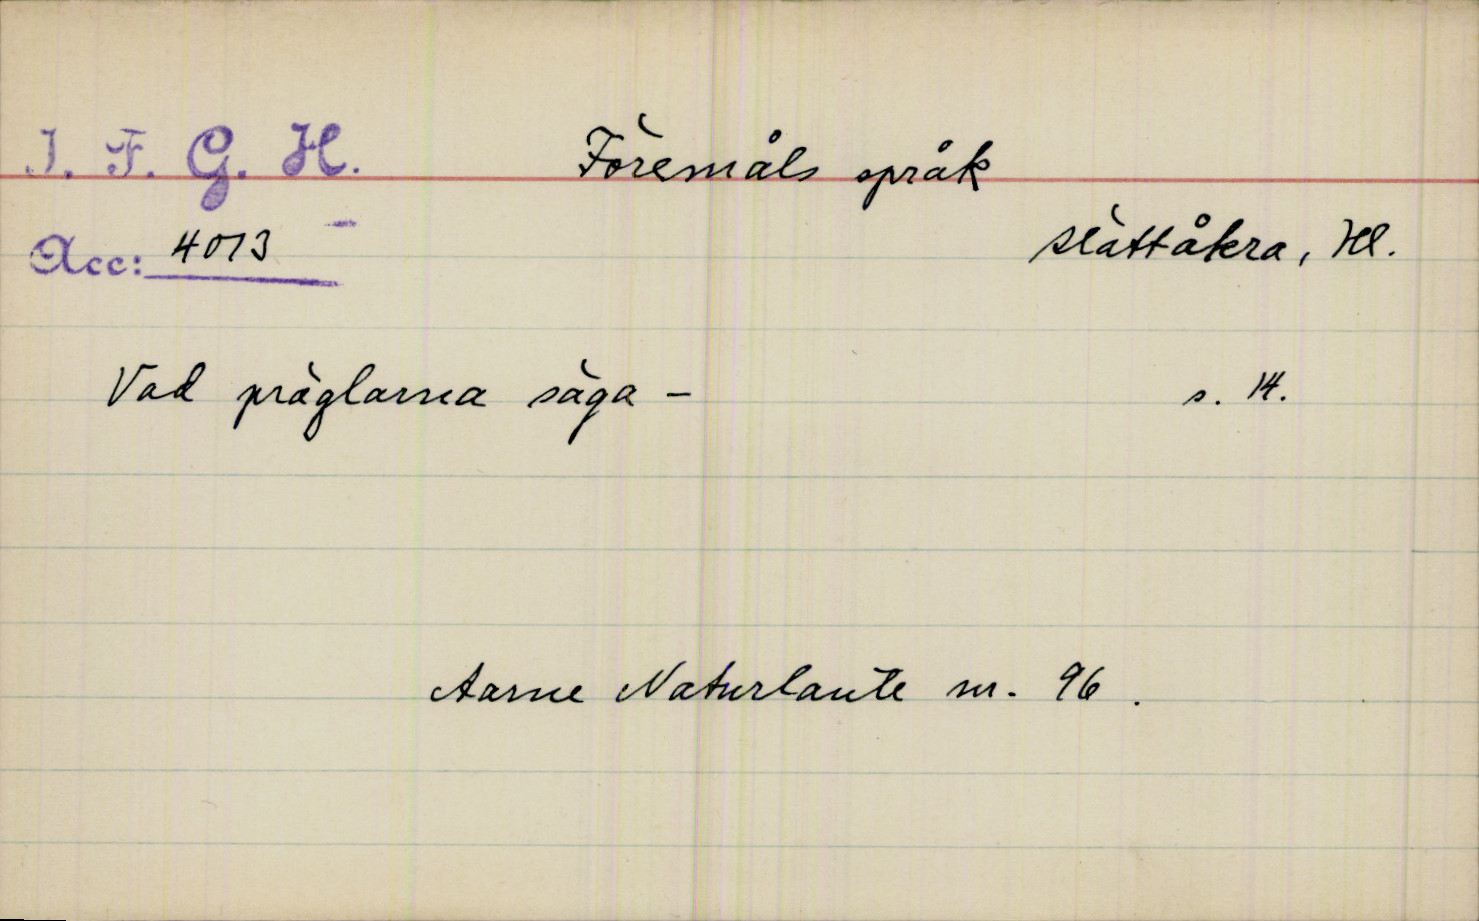 I. F. G. H.
Föremåls språk
Acc: 4013
Slättåkra, Hl.
Vad präglarna säga – s. 14.
Aarne Naturlaute nr. 96.